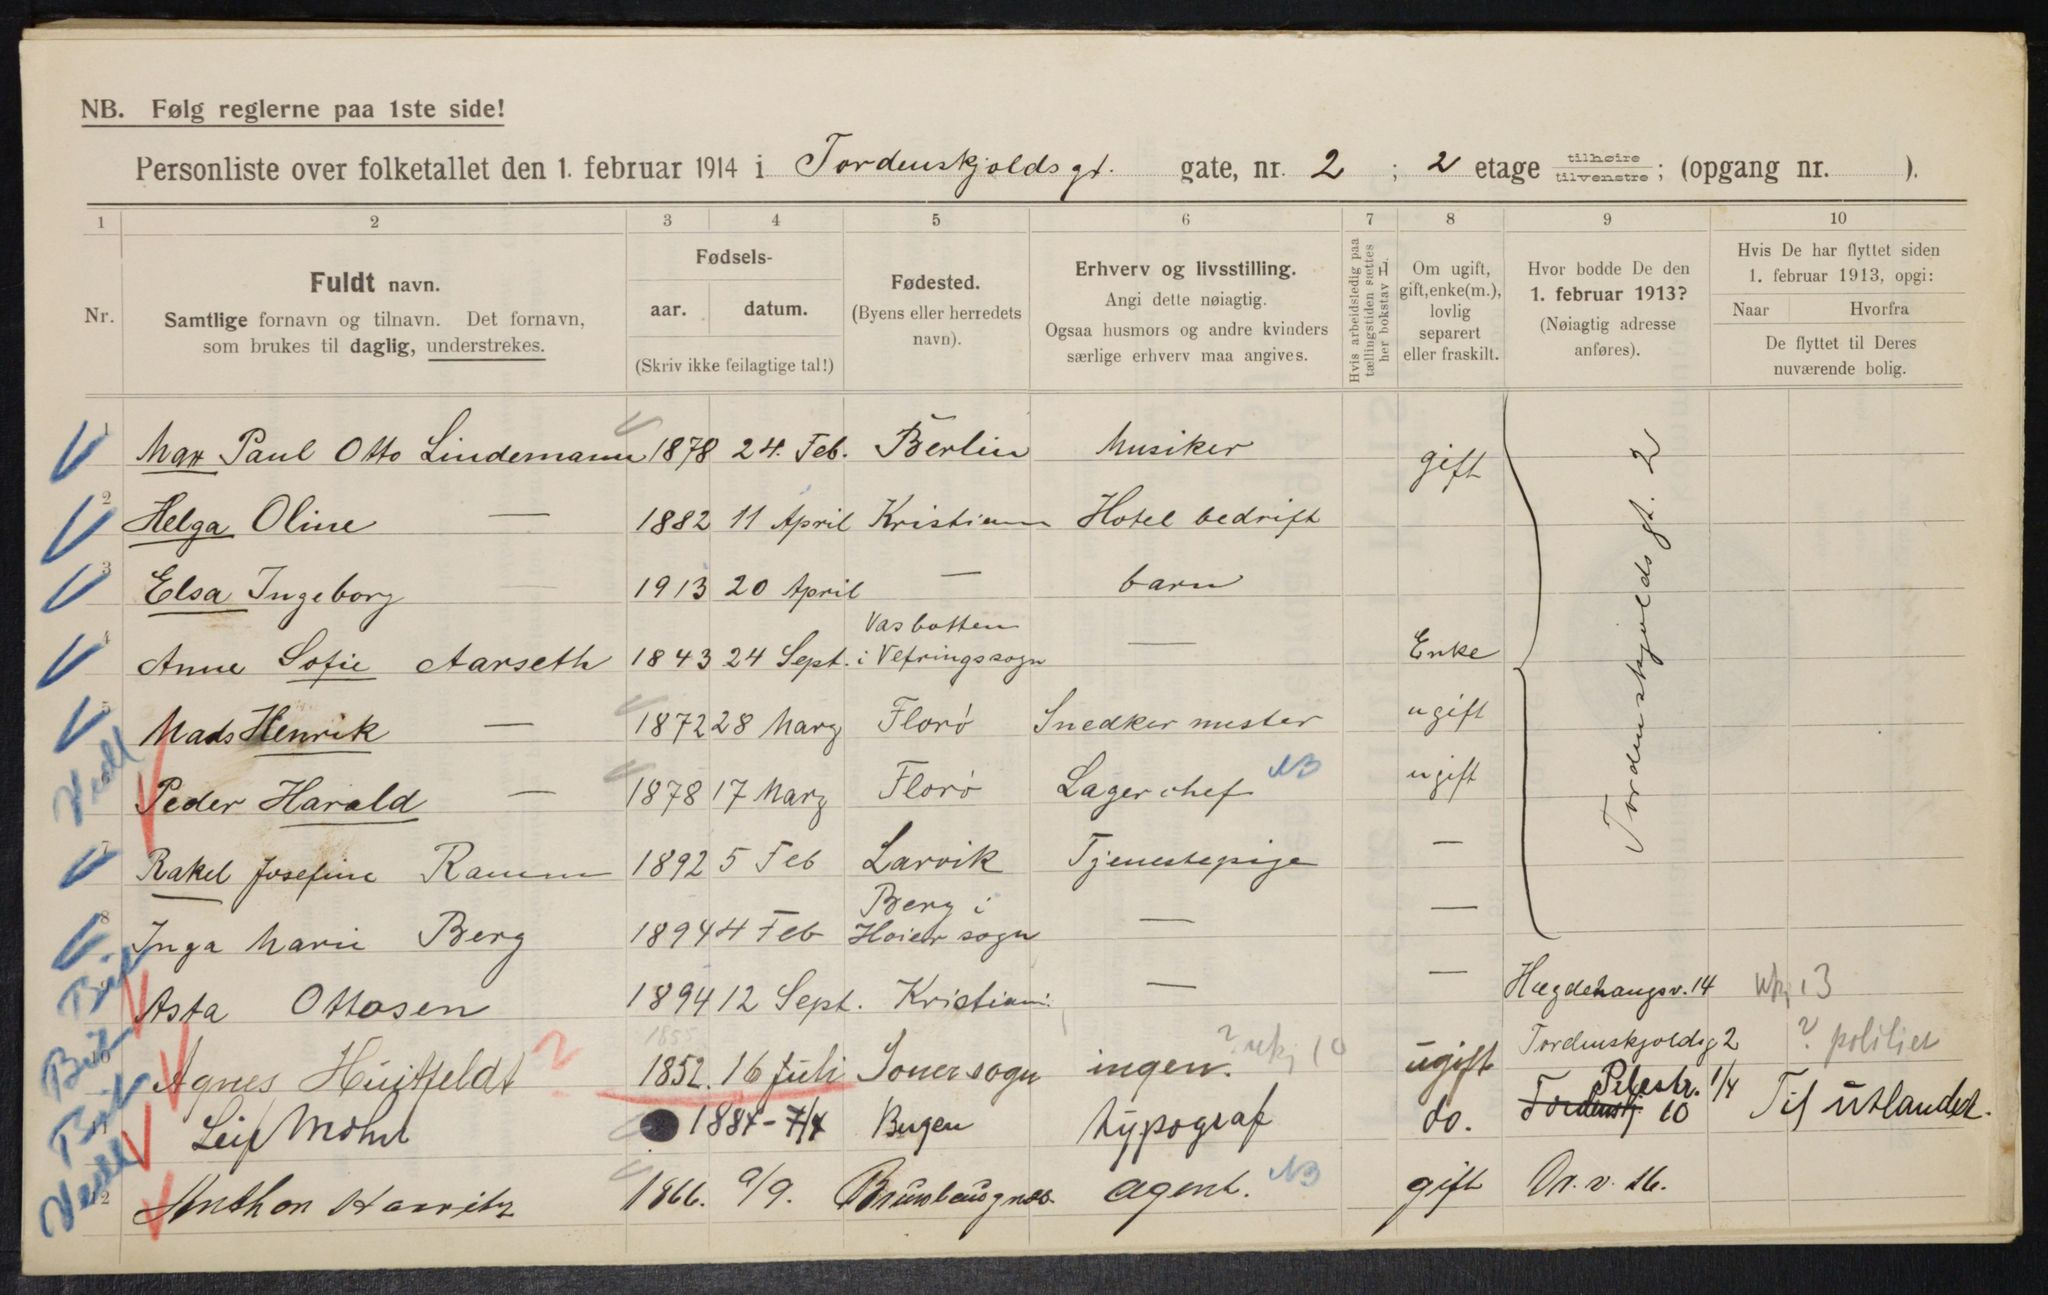 NB. Følg reglerne paa 1ste side!
Personliste over folketallet den 1. februar 1914 i Tordenskjolds gt. gate, nr. 2 ; 2 etage tilhøire tilvenstre ; (opgang nr. ).
1 2 3 4 5 6 7 8 9 10
Nr.
Fuldt navn.
Samtlige fornavn og tilnavn. Det fornavn,
som brukes til daglig, understrekes.
Fødsels-
aar. datum.
(Skriv ikke feilagtige tal!)
Fødested.
(Byens eller herredets
navn).
Erhverv og livsstilling.
Angi dette nøiagtig.
Ogsaa husmors og andre kvinders
særlige erhverv maa angives.
Hvis arbeidsledig paa
tællingstiden sættes
her bokstav A.
Om ugift,
gift, enke(m.),
lovlig
separert
eller fraskilt.
Hvor bodde De den
1. februar 1913?
(Nøiagtig adresse
anføres).
Hvis De har flyttet siden
1. februar 1913, opgi:
Naar Hvorfra
De flyttet til Deres
nuværende bolig.
1 Max Paul Otto Lindemann 1878 24. Feb. Berlin Musiker gift
Tordenskjolds gt. 2
2 Helga Oline — 1882 11 April Kristiania Hotel bedrift
3 Elsa Ingeborg 1913 20 April — barn
4 Anne Sofie Aarseth 1843 24 Sept. Vasbotten i Vefringssogn — Enke
5 Mads Henrik — 1872 28 Marz Florø Snedker mester ugift
6 Peder Harald — 1878 17 Marz Florø Lager chef NB ugift
7 Rakel Josefine Ramm 1892 5 Feb Larvik Tjenestepige —
8 Inga Marie Berg 1894 4 Feb Berg i Hoier sogn — —
Asta Ottosen 1894 12 Sept. Kristiani. — — Hægdehaugsv. 14 13
10 Agnes Huitfeldt ? 1855 1852. 16 Juli sogn ingen. ? 10 ugift Tordenskjoldsg 2 ? politiet
Leif Mohr 1884 - 7/4 Bergen typograf do. Tordenskj Pilestr. 10 1/4 Til utlandet.
12 Anthon 1866. 9/9. agent. NB gift Dr. v. 16.